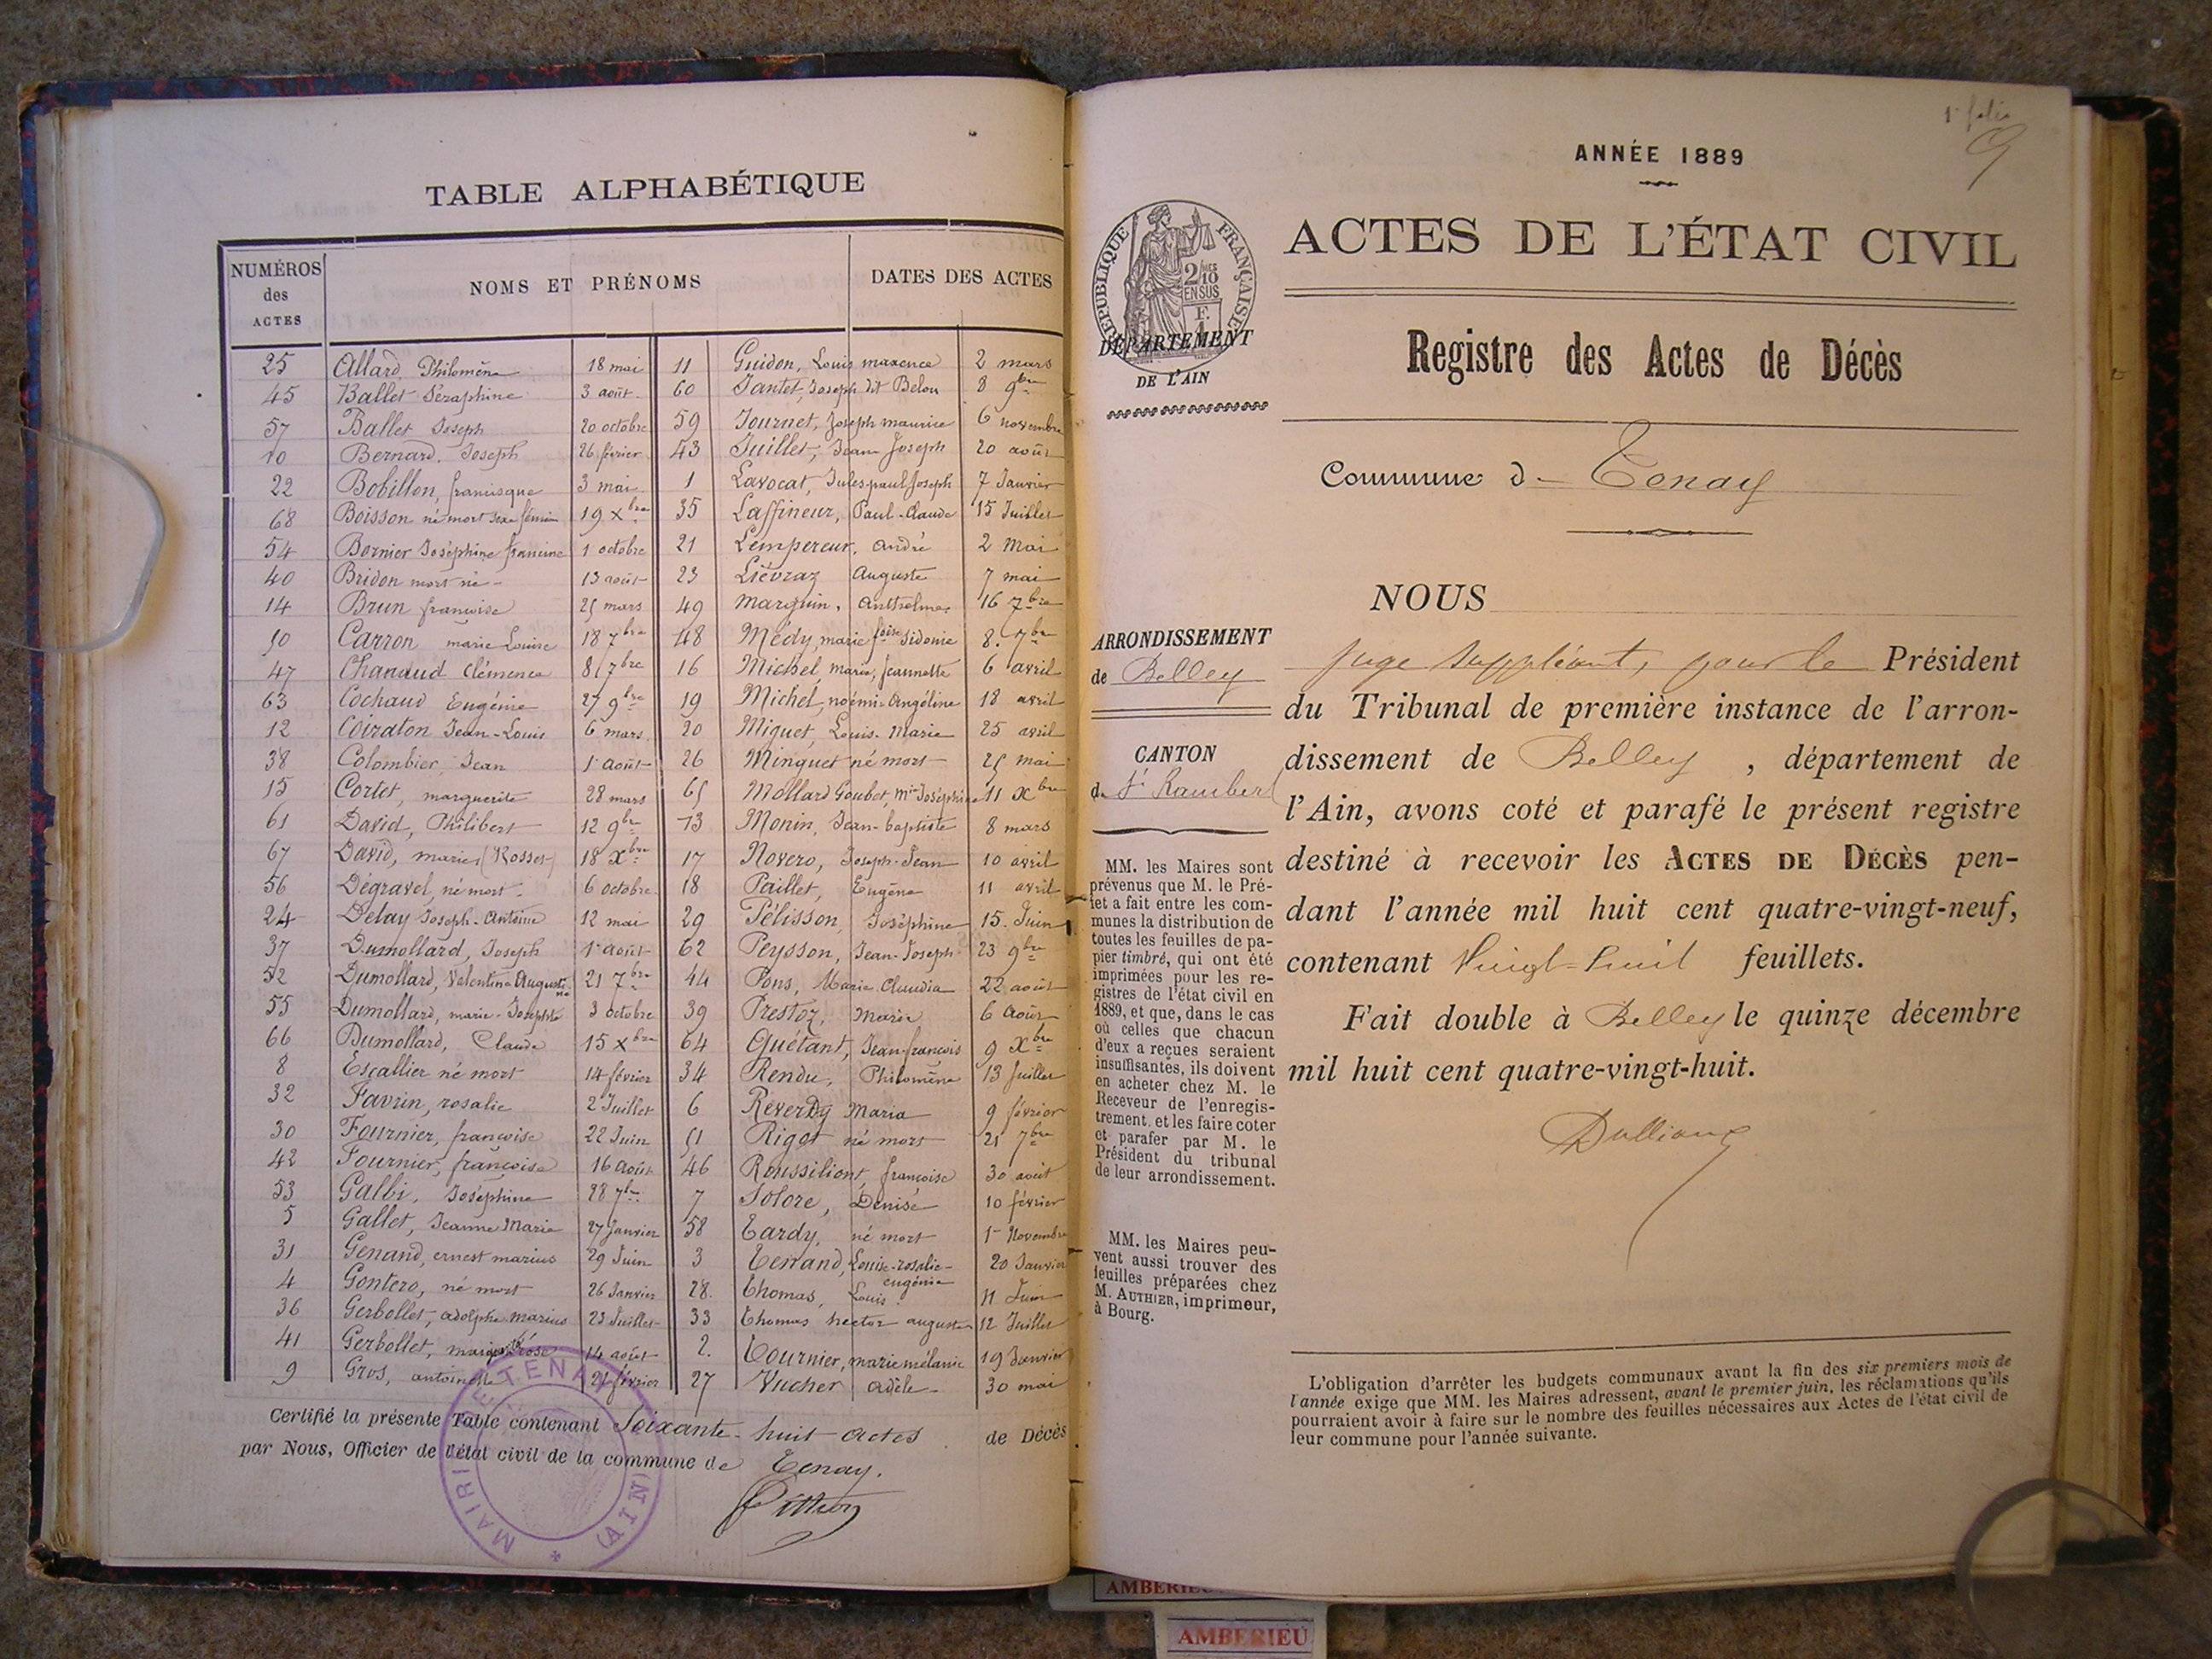 TABLE ALPHABÉTIQUE
NUMÉROS des ACTES
NOMS ET PRÉNOMS
DATES DES ACTES
25 Allard, Philomène 18 mai
45 Ballet Séraphine 3 août
57 Ballet Joseph 20 octobre
10 Bernard. Joseph 26 février
22 Bobillon, francisque 3 mai
68 Boisson né mort sexe féminin 19 Xbre
54 Bornier Joséphine francine 1 octobre
40 Bridon mort né 13 août
14 Brun françoise 25 mars
50 Carron marie Louise 18 7bre
47 Chanaud Clémence 8 7bre
63 Cochaud Eugénie 27 9bre
12 Coiraton Jean-Louis 6 mars
38 Colombier Jean 1er août
15 Cortet, marguerite 28 mars
61 David, Philibert 12 9bre
67 David, marie (Rosset) 18 Xbre
56 Dégravel, né mort 6 octobre
24 Délay Joseph-Antoine 12 mai
37 Dumollard, Joseph 1er août
52 Dumollard, Valentine Augustine 21 7bre
55 Dumollard, marie-Josephte 3 octobre
66 Dumollard, Claude 15 Xbre
8 Escallier né mort 14 février
32 Favrin, rosalie 2 Juillet
30 Fournier, françoise 22 Juin
42 Fournier, françoise 16 août
53 Galbi, Joséphine 28 7bre
5 Gallet, Jeanne Marie 27 Janvier
31 Genand, ernest marius 29 Juin
4 Gontero, né mort 26 Janvier
36 Gerbollet, adolphe marius 23 Juillet
41 Gerbollet, rose 14 août
9 Gros, antoinette 21 février
11 Guidon, Louis maxence 2 mars
60 Jantet, Joseph dit Belou 8 9bre
59 Journet, Joseph maurice 6 novembre
43 Juillet, Jean Joseph 20 août
1 Lavocat, Jules paul Joseph 7 Janvier
35 Laffineur, Paul-Claude 15 Juillet
21 Lempereur, André 2 Mai
23 Liévraz Auguste 7 mai
49 Marquin, Anthelme 16 7bre
48 Médy, marie foise Sidonie 8. 7bre
16 Michel, marie, Jeannette 6 avril
19 Michel, noémie Angéline 18 avril
20 Miguet, Louis-Marie 25 avril
26 Minguet né mort 25 mai
65 Mollard Goubet, Mie Joséphine 11 Xbre
13 Monin, Jean-baptiste 8 mars
17 Novero, Joseph-Jean 10 avril
18 Paillet, Eugène 11 avril
29 Pélisson, Joséphine 15. Juin
62 Peysson, Jean-Joseph 23 9bre
44 Pons, Marie Claudia 22 août
39 Prestoz, Marie 6 Août
64 Quétant, Jean-françois 9 Xbre
34 Rendu, Philomène 13 Juillet
6 Reverdy Maria 9 février
51 Rigot né mort 21 7bre
46 Roussiliont, françoise 30 août
7 Solore, Denise 10 février
58 Tardy, né mort 1er Novembre
3 Terrand, Louise-rosalie-eugénie 20 Janvier
28. Thomas, Louis. 11 Juin
33 Thomas hector auguste 12 Juillet
2. Tournier, marie mélanie 19 Janvier
27 Vucher adèle 30 mai
Certifié la présente Table contenant Soixante-huit actes de Décès
par Nous, Officier de l'état civil de la commune de Tenay.
MAIRIE DE TENAY (AIN)
1er folio
ANNÉE 1889
ACTES DE L'ÉTAT CIVIL
RÉPUBLIQUE FRANÇAISE
2/10 EN SUS
F.
DÉPARTEMENT
DE L'AIN
Registre des Actes de Décès
Commune d Tenay
ARRONDISSEMENT
de Belley
CANTON
de St Rambert
MM. les Maires sont
prévenus que M. le Pré-
fet a fait entre les com-
munes la distribution de
toutes les feuilles de pa-
pier timbré, qui ont été
imprimées pour les re-
gistres de l'état civil en
1889, et que, dans le cas
où celles que chacun
d'eux a reçues seraient
insuffisantes, ils doivent
en acheter chez M. le
Receveur de l'enregis-
trement, et les faire coter
et parafer par M. le
Président du tribunal
de leur arrondissement.
MM. les Maires peu-
vent aussi trouver des
feuilles préparées chez
M. AUTHIER, imprimeur,
à Bourg.
NOUS
juge suppléant, pour le Président
du Tribunal de première instance de l'arron-
dissement de Belley, département de
l'Ain, avons coté et parafé le présent registre
destiné à recevoir les ACTES DE DÉCÈS pen-
dant l'année mil huit cent quatre-vingt-neuf,
contenant Vingt-huit feuillets.
Fait double à Belley le quinze décembre
mil huit cent quatre-vingt-huit.
L'obligation d'arrêter les budgets communaux avant la fin des six premiers mois de
l'année exige que MM. les Maires adressent, avant le premier juin, les réclamations qu'ils
pourraient avoir à faire sur le nombre des feuilles nécessaires aux Actes de l'état civil de
leur commune pour l'année suivante.
AMBERIEU
AMBERIEU